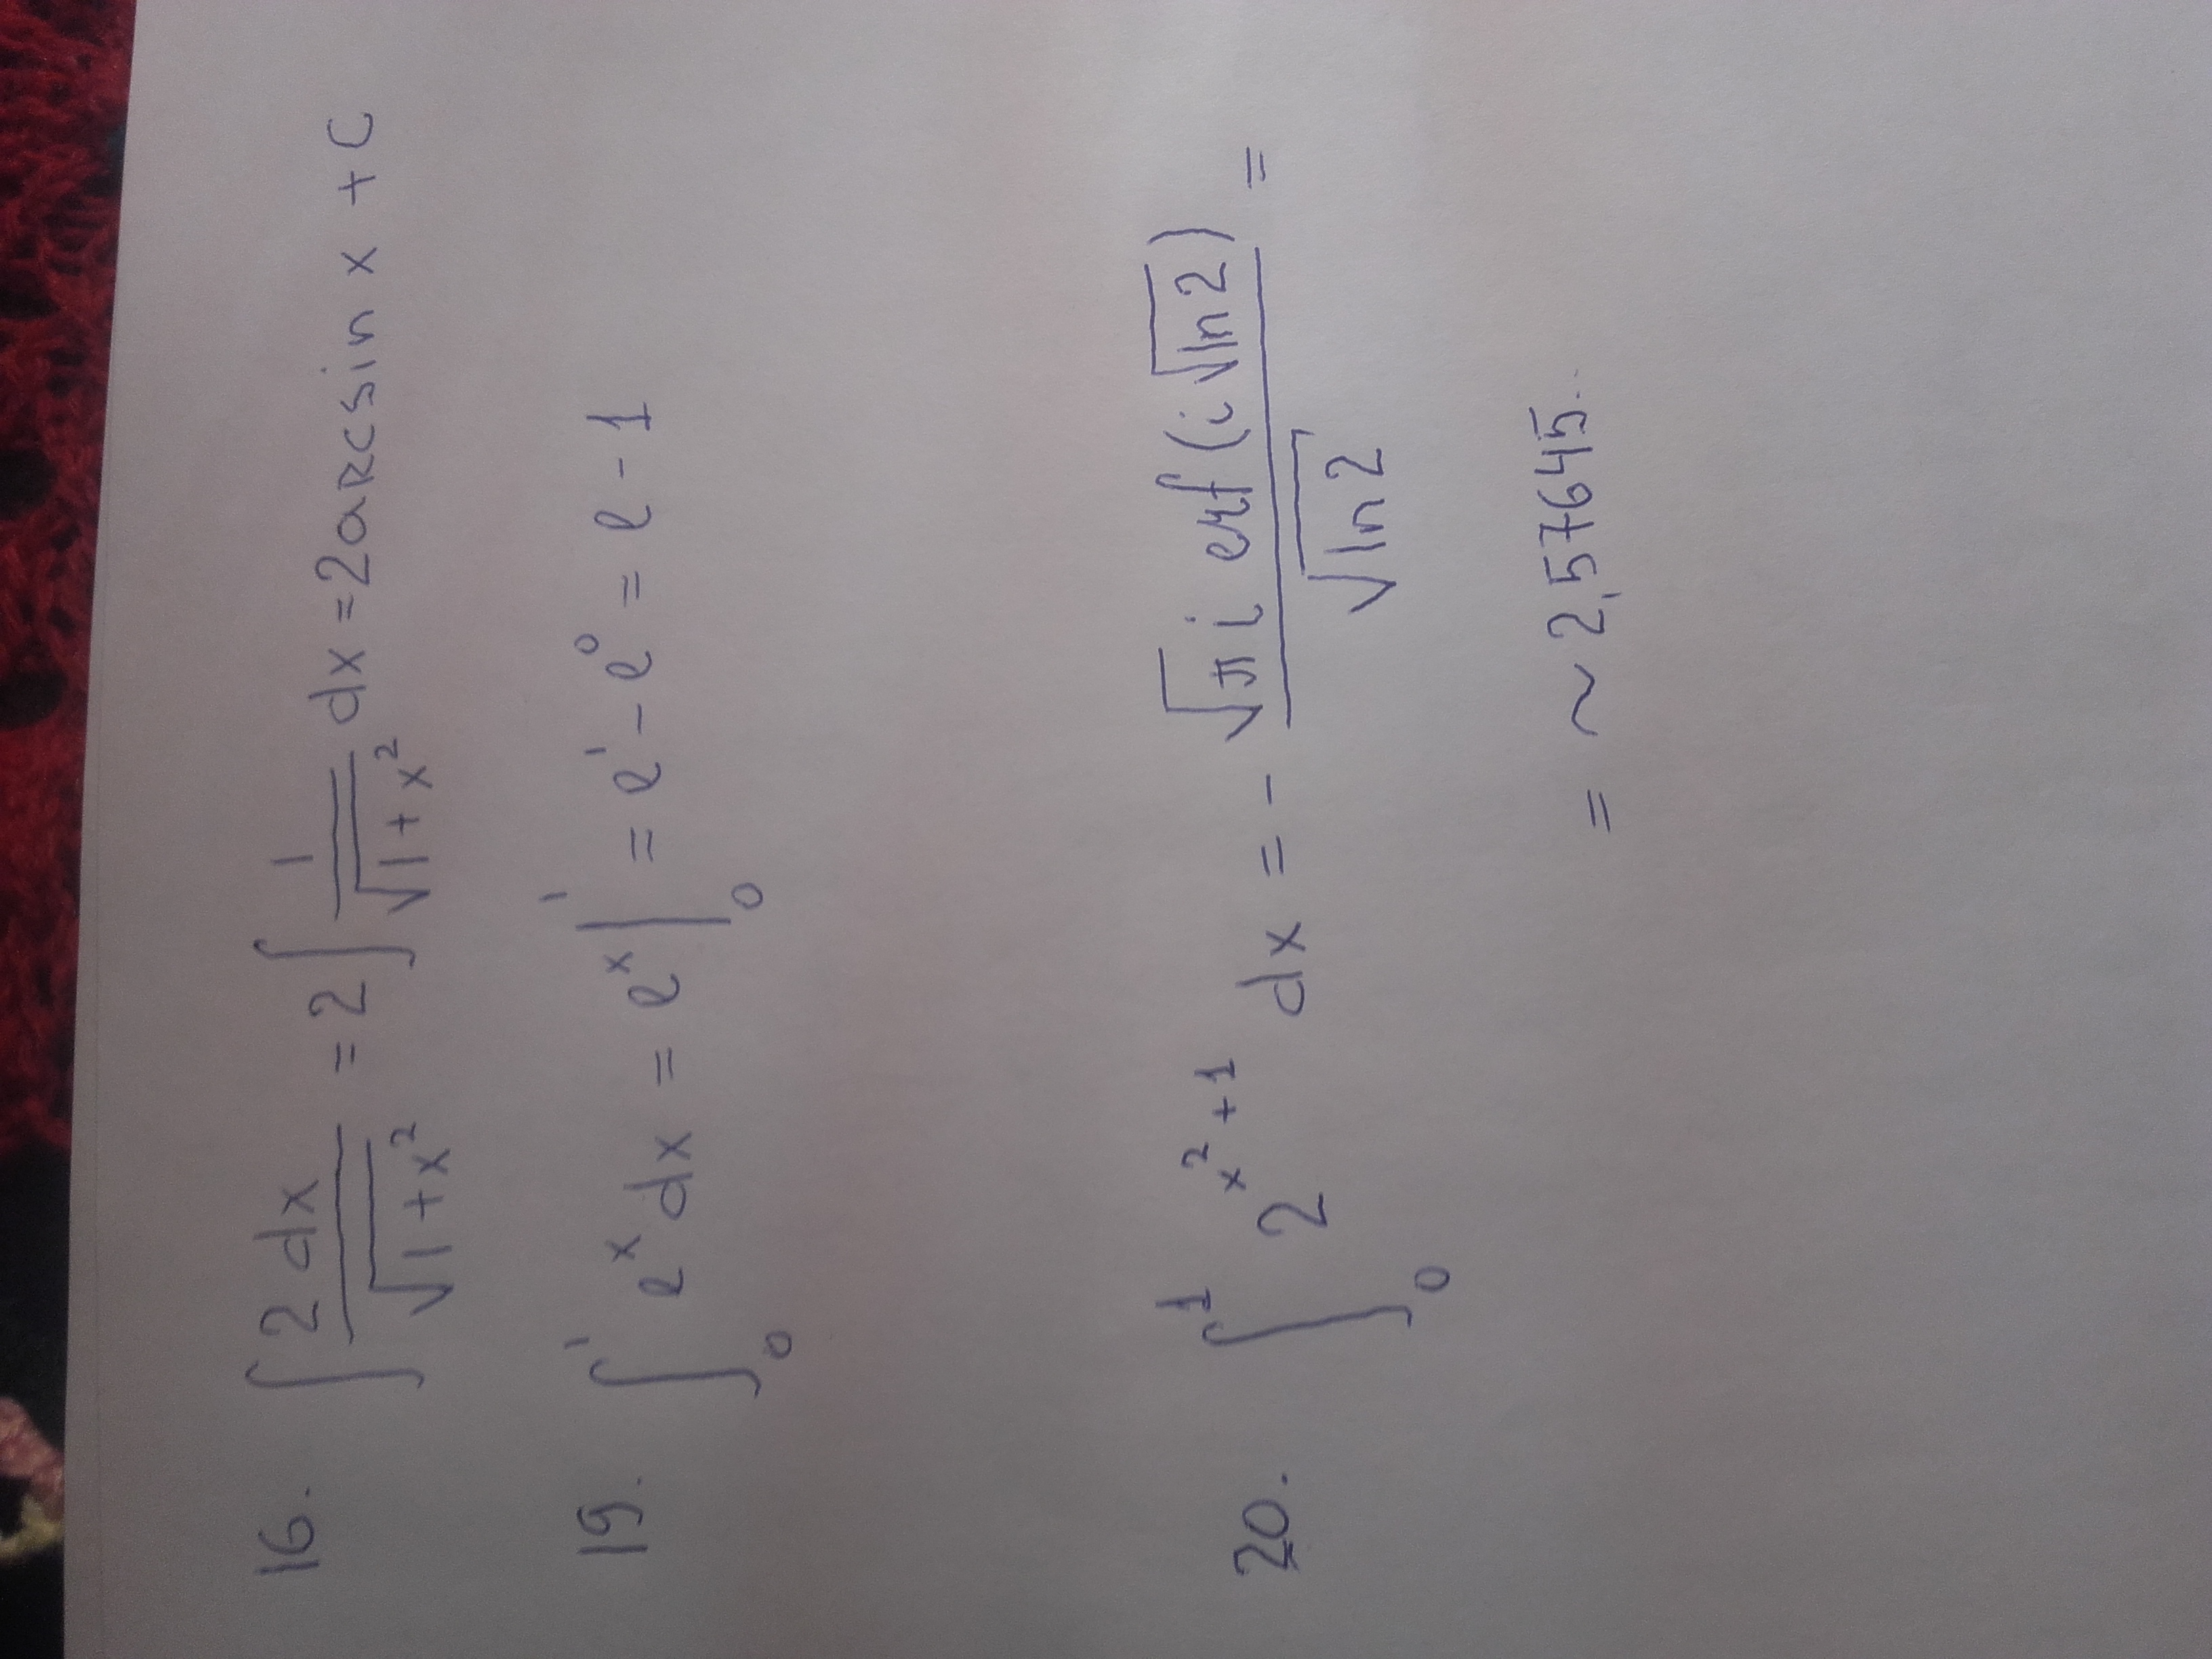 16. ∫ 2dx/√(1+x²) = 2∫ 1/√(1+x²) dx = 2arcsin x + C
19. ∫₀¹ eˣ dx = eˣ|₀¹ = e¹ - e⁰ = e - 1
20. ∫₀¹ 2^(x²+1) dx = - √π i erf(i√ln2)/√ln2 =
= ~ 2,57645..